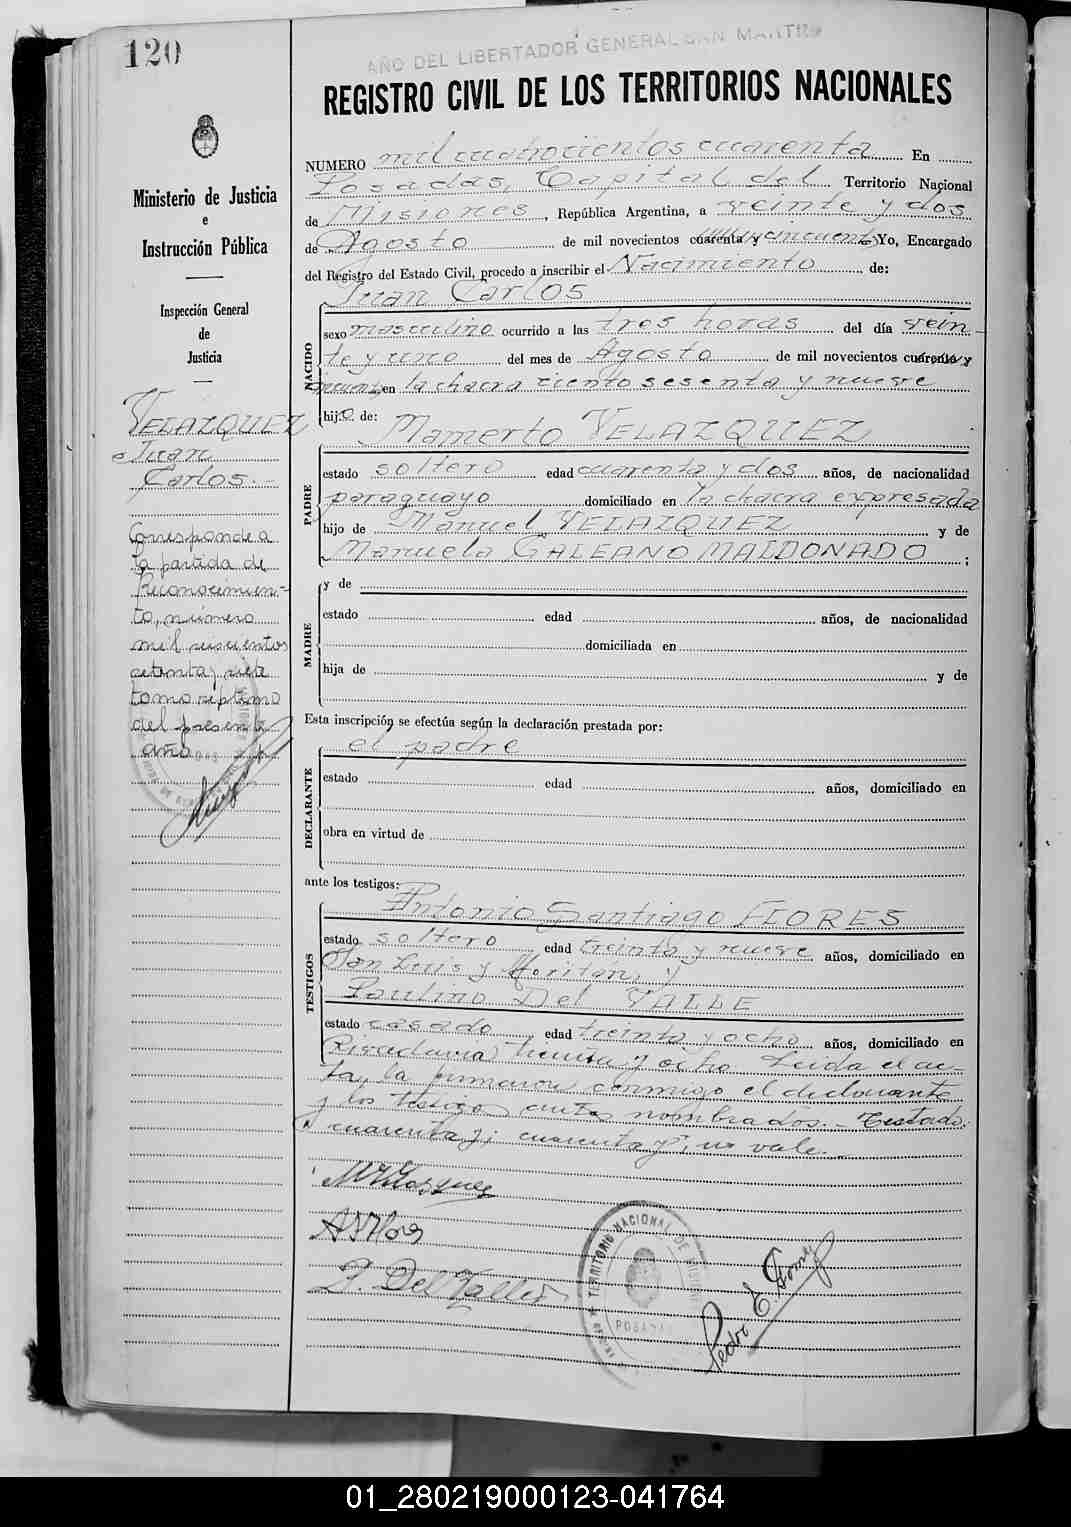 120
AÑO DEL LIBERTADOR GENERAL SAN MARTIN
REGISTRO CIVIL DE LOS TERRITORIOS NACIONALES
Ministerio de Justicia
e
Instrucción Pública
Inspección General
de
Justicia
VELAZQUEZ
Juan
Carlos.-
Corresponde a
la partida de
Reconocimien-
to, número
mil seiscientos
setenta y siete
tomo séptimo
del presente
año
NUMERO mil cuatrocientos cuarenta En
Posadas, Capital del Territorio Nacional
de Misiones, República Argentina, a veinte y dos
de Agosto de mil novecientos cuarenta y cincuenta Yo, Encargado
del Registro del Estado Civil, procedo a inscribir el Nacimiento de:
Juan Carlos
NACIDO
sexo masculino ocurrido a las tres horas del día vein-
te y uno del mes de Agosto de mil novecientos cuarenta y
cincuenta en la chacra ciento sesenta y nueve
hijo de:
Mamerto VELAZQUEZ
PADRE
estado soltero edad cuarenta y dos años, de nacionalidad
paraguayo domiciliado en la chacra expresada
hijo de Manuel VELAZQUEZ y de
Manuela GALEANO MALDONADO ;
MADRE
y de
estado edad años, de nacionalidad
domiciliada en
hija de y de
Esta inscripción se efectúa según la declaración prestada por:
el padre
DECLARANTE
estado edad años, domiciliado en
obra en virtud de
ante los testigos:
TESTIGOS
Antonio Santiago FLORES
estado soltero edad treinta y nueve años, domiciliado en
San Luis y Moritan, y
Paulino Del VALLE
estado casado edad treinta y ocho años, domiciliado en
Rivadavia treinta y ocho Leida el ac-
ta, la firmaron conmigo el declarante
y los testigos antes nombrados.- Testado:
cuarenta y; cuarenta y; no vale.-
M Velazquez
A S Flores
P. Del Valle
TERRITORIO NACIONAL DE
POSADAS
Pedro E. Gomez
01_280219000123-041764